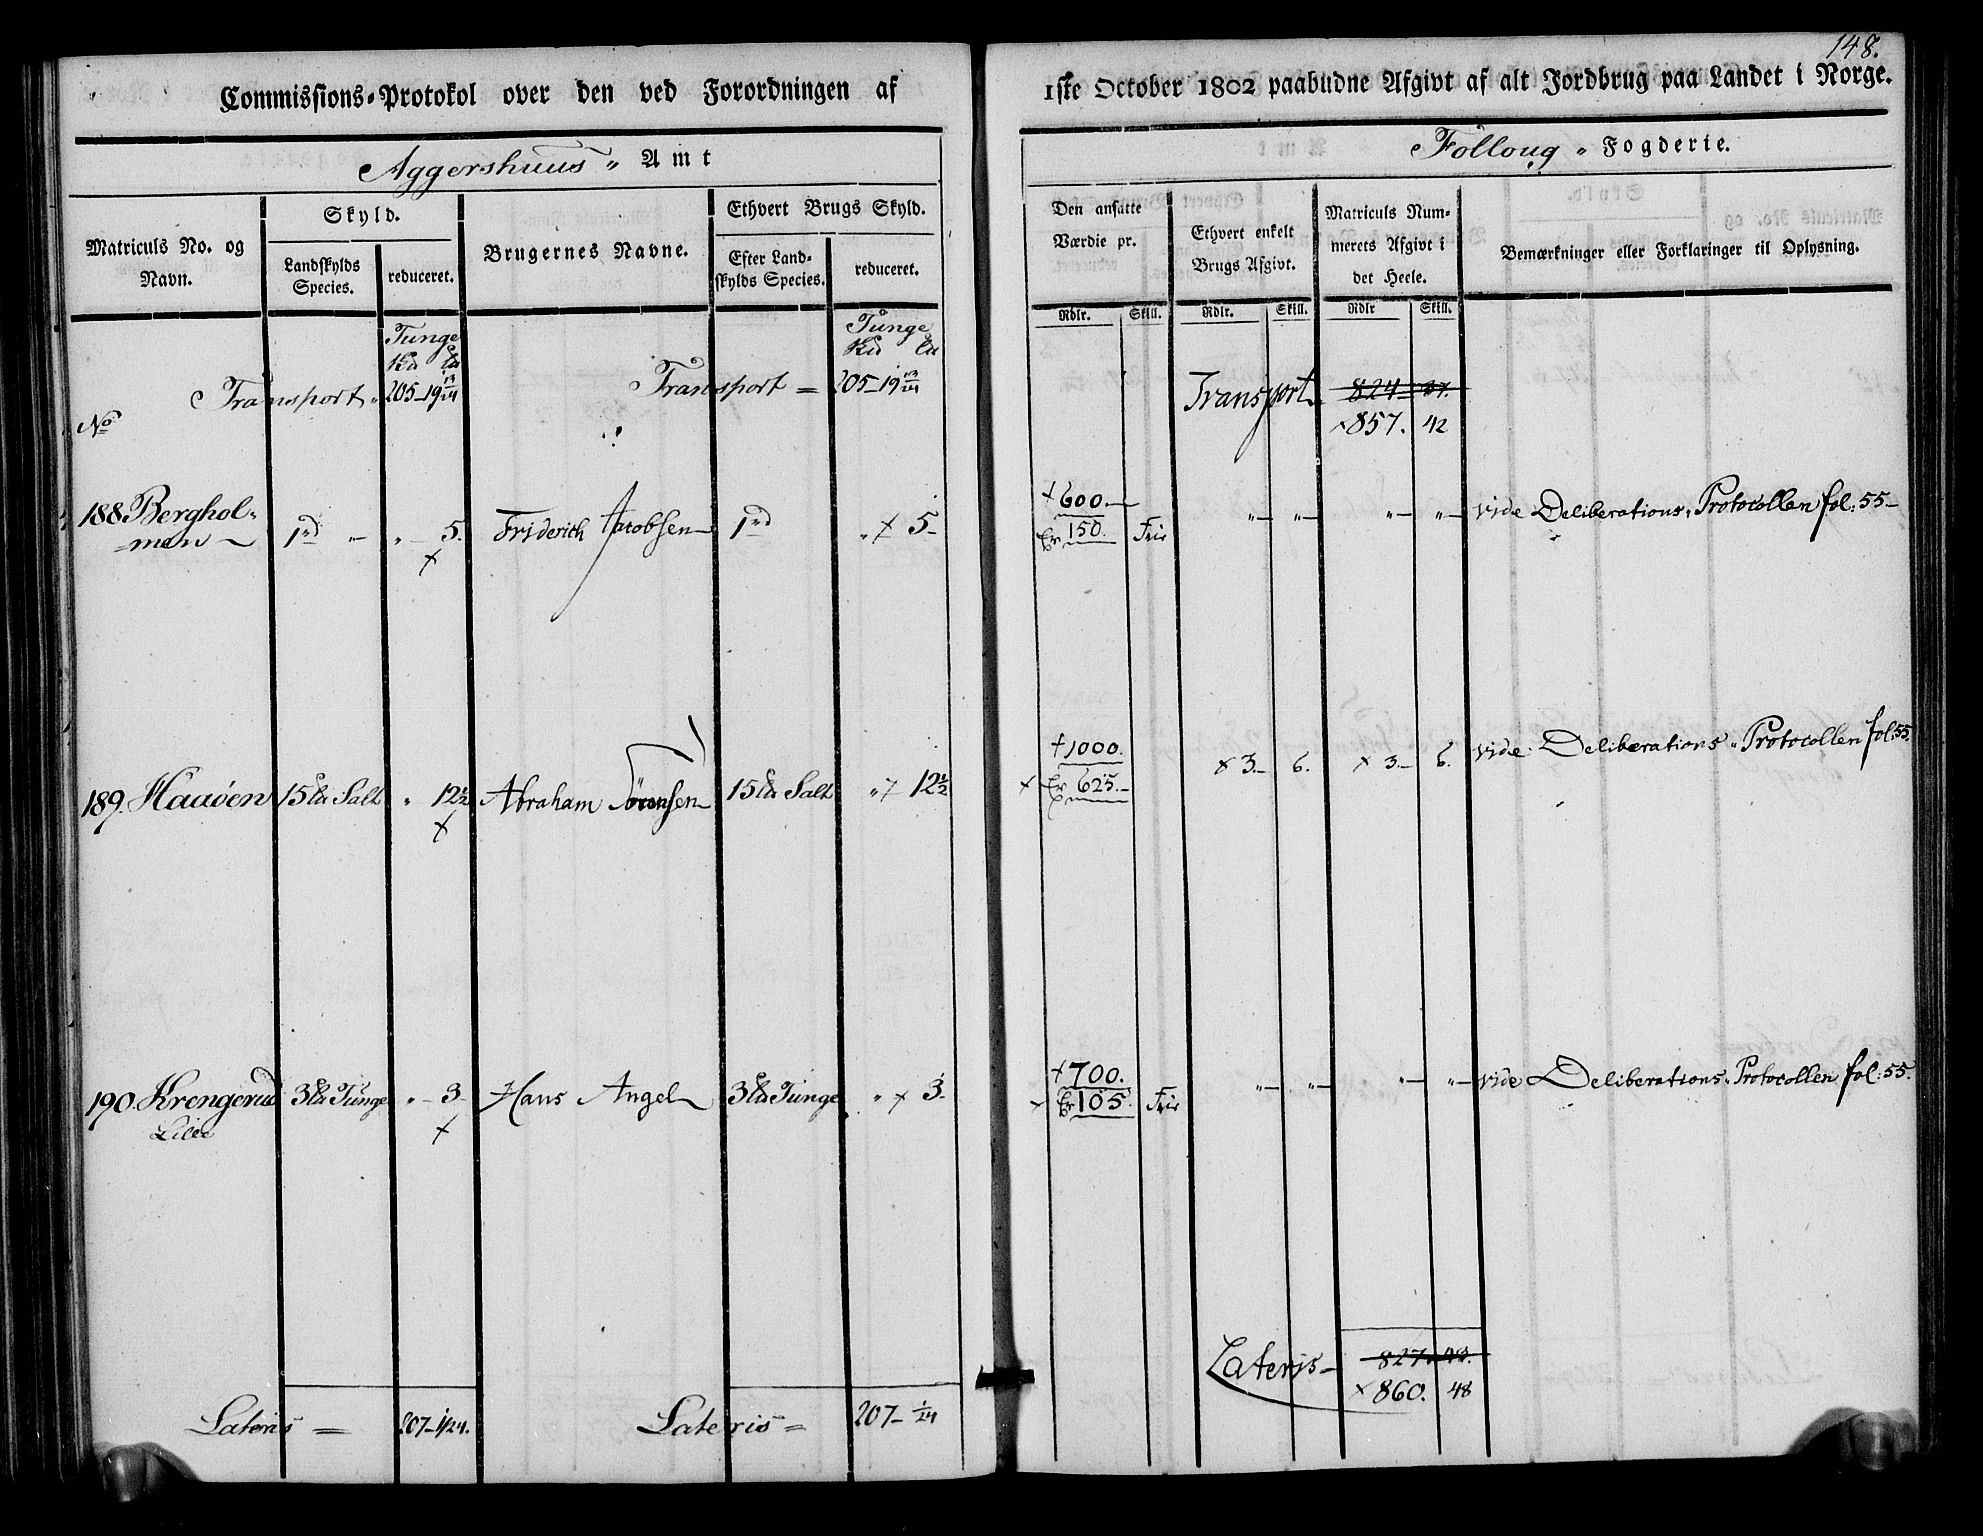 148.
Commissions-Protokol over den ved Forordningen af 1ste October 1802 paabudne Afgivt af alt Jordbrug paa Landet i Norge.
Aggershuus " Amt
Folloug " Fogderie.
Matriculs No. og Navn.
Skyld.
Landskylds Species.
reduceret.
Brugernes Navne.
Ethvert Brugs Skyld.
Efter Landskylds Species.
reduceret.
Den ansatte Værdie pr.
Rdlr. Skill.
Ethvert enkelt Brugs Afgivt.
Rdlr. Skill.
Matriculs Nummerets Afgivt i det Heele.
Rdlr Skill.
Bemærkninger eller Forklaringer til Oplysning.
Tunge Tunge
Transport " 205-19 13/24 Transport = 205-19 13/24 Transport 824 
No 857. 42
188. Berghol- 1 " " - 5. Friderich Jacobsen 1 " 5 - +600. " " " " vide Deliberations Protocollen fol: 55 -
men 150. Frie
189. Haaøen 15 Salt " 12½ Abraham Sörensen 15 Salt " 12½ +1000. 3. - 6. 3. - 6. vide Deliberations Protocollen fol: 55.
625. -
190. Krengerud 3 Tunge " - 3 - Hans Angel 3 Tunge " 3 - +700. " " " " vide Deliberations Protocollen fol: 55.
Lille 105. Frie
Lateris - 827. 
860. 48
Lateris = 207 - 1/24. Lateris = 207 - 1/24